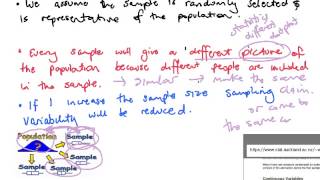 • We assume the sample is randomly selected &
is representative of the population.
statistic
different
• Every sample will give a 'different picture' of
the population because different people are included
in the sample. → similar → make the same
claim.
• If I increase the sample size sampling
variability will be reduced.
or come to
the same
Population
?
Sample
Sample
Sample
Sample
Continuous Variables